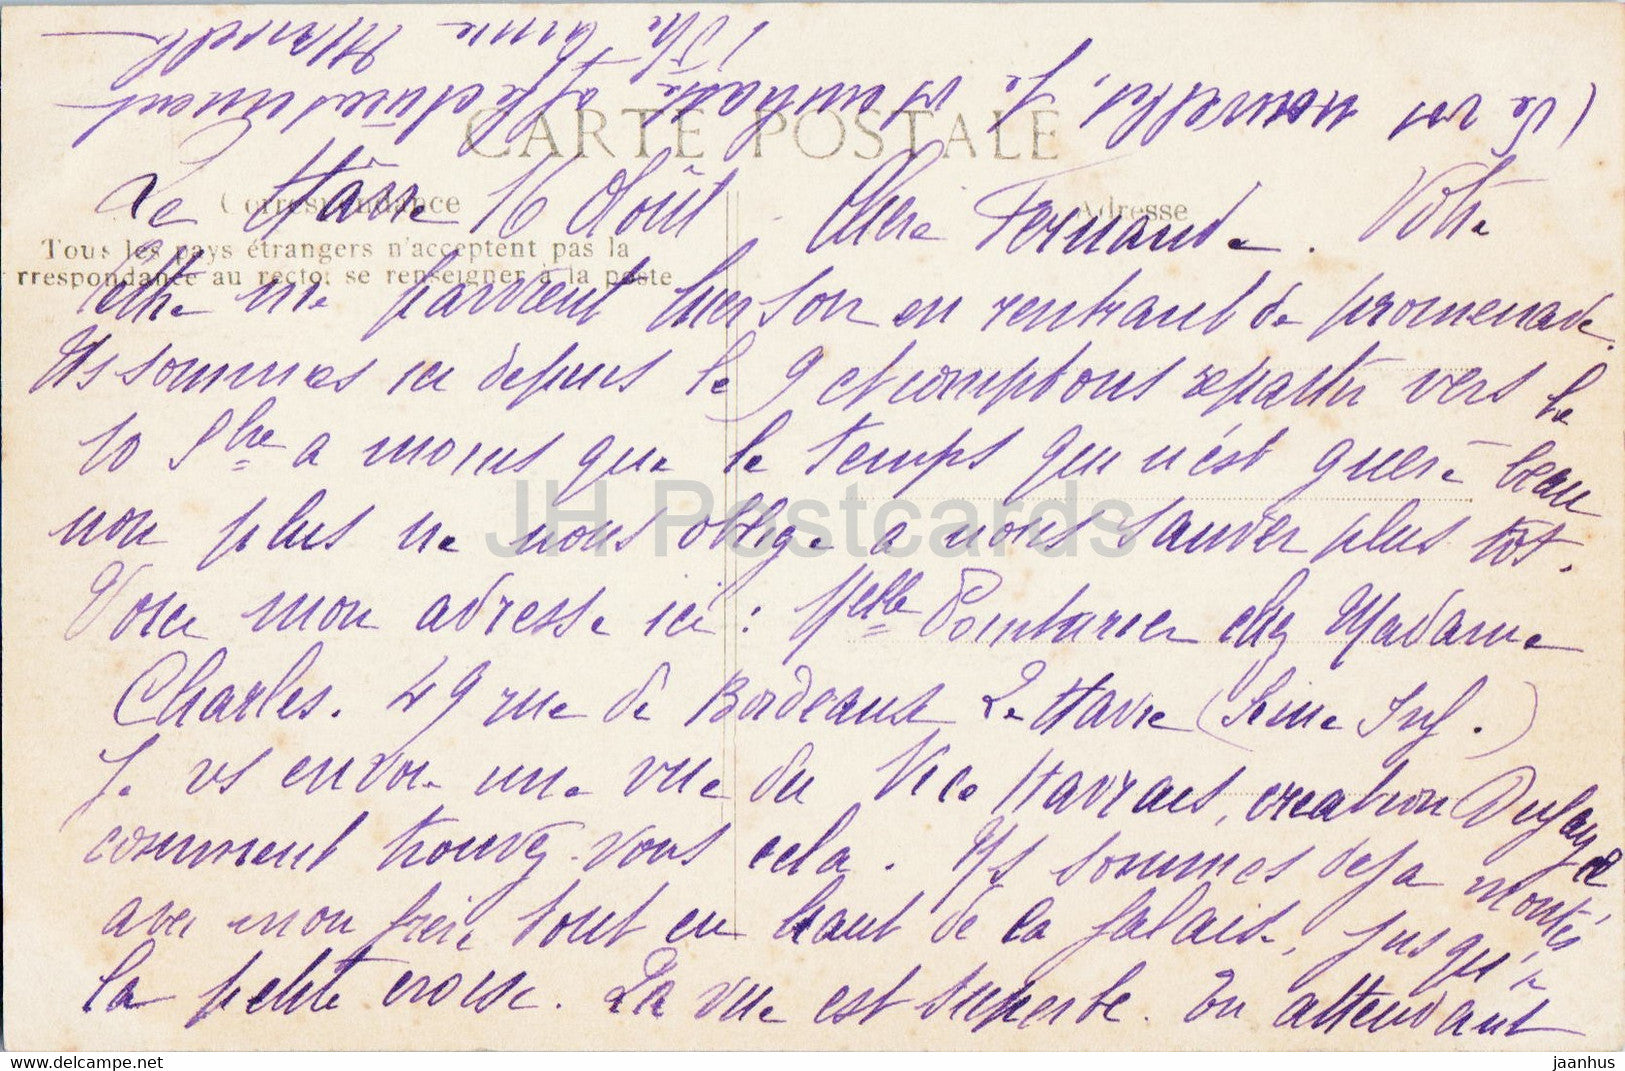 CARTE POSTALE
Correspondance
Adresse
Tous les pays étrangers n'acceptent pas la
rrespondance au recto: se renseigner à la poste
Le Hâvre 16 Août Chère Fernande. Votre
lettre me parvient hier soir en rentrant de promenade.
Ns sommes ici depuis le 9 et comptons repartir vers le
10 Sbre a moins que le temps qui n'est guère beau
non plus ne nous oblige a nous sauver plus tôt.
Voici mon adresse ici : Melle chez Madame
Charles. 49 rue de Bordeaux Le Havre (Seine Inf.)
Je vs envoie une vue du Nice Havrais, création Dufayel
comment trouvez-vous cela. Ns sommes deja montés
avec mon frère tout en haut de la falaise, jusqu'à
la petite croise. La vue est superbe. En attendant
(de vos nouvelles, je vs embrasse affectueusement
JH Postcards
jaanhus - HipPostcard.com